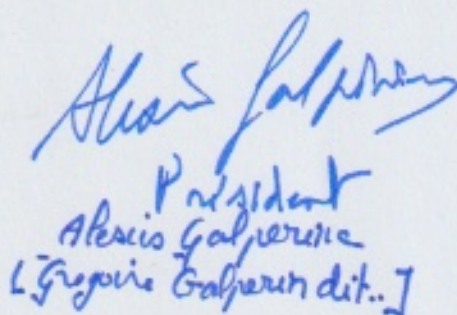 Alexis Galpérine
Président
Alexis Galperine
[Grégoire Galperin dit..]